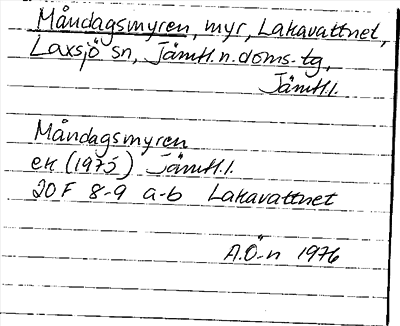 Måndagsmyren, myr, Lakavattnet,
Laxsjö sn, Jämtl.n.doms.tg,
Jämtl.l.
Måndagsmyren
ek (1975) Jämtl.l.
20F 8-9 a-b Lakavattnet
A.Ö-n 1976